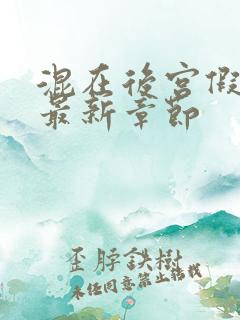 混在後宮假
最新章節
歪脖鉄樹
未经同意禁止转载